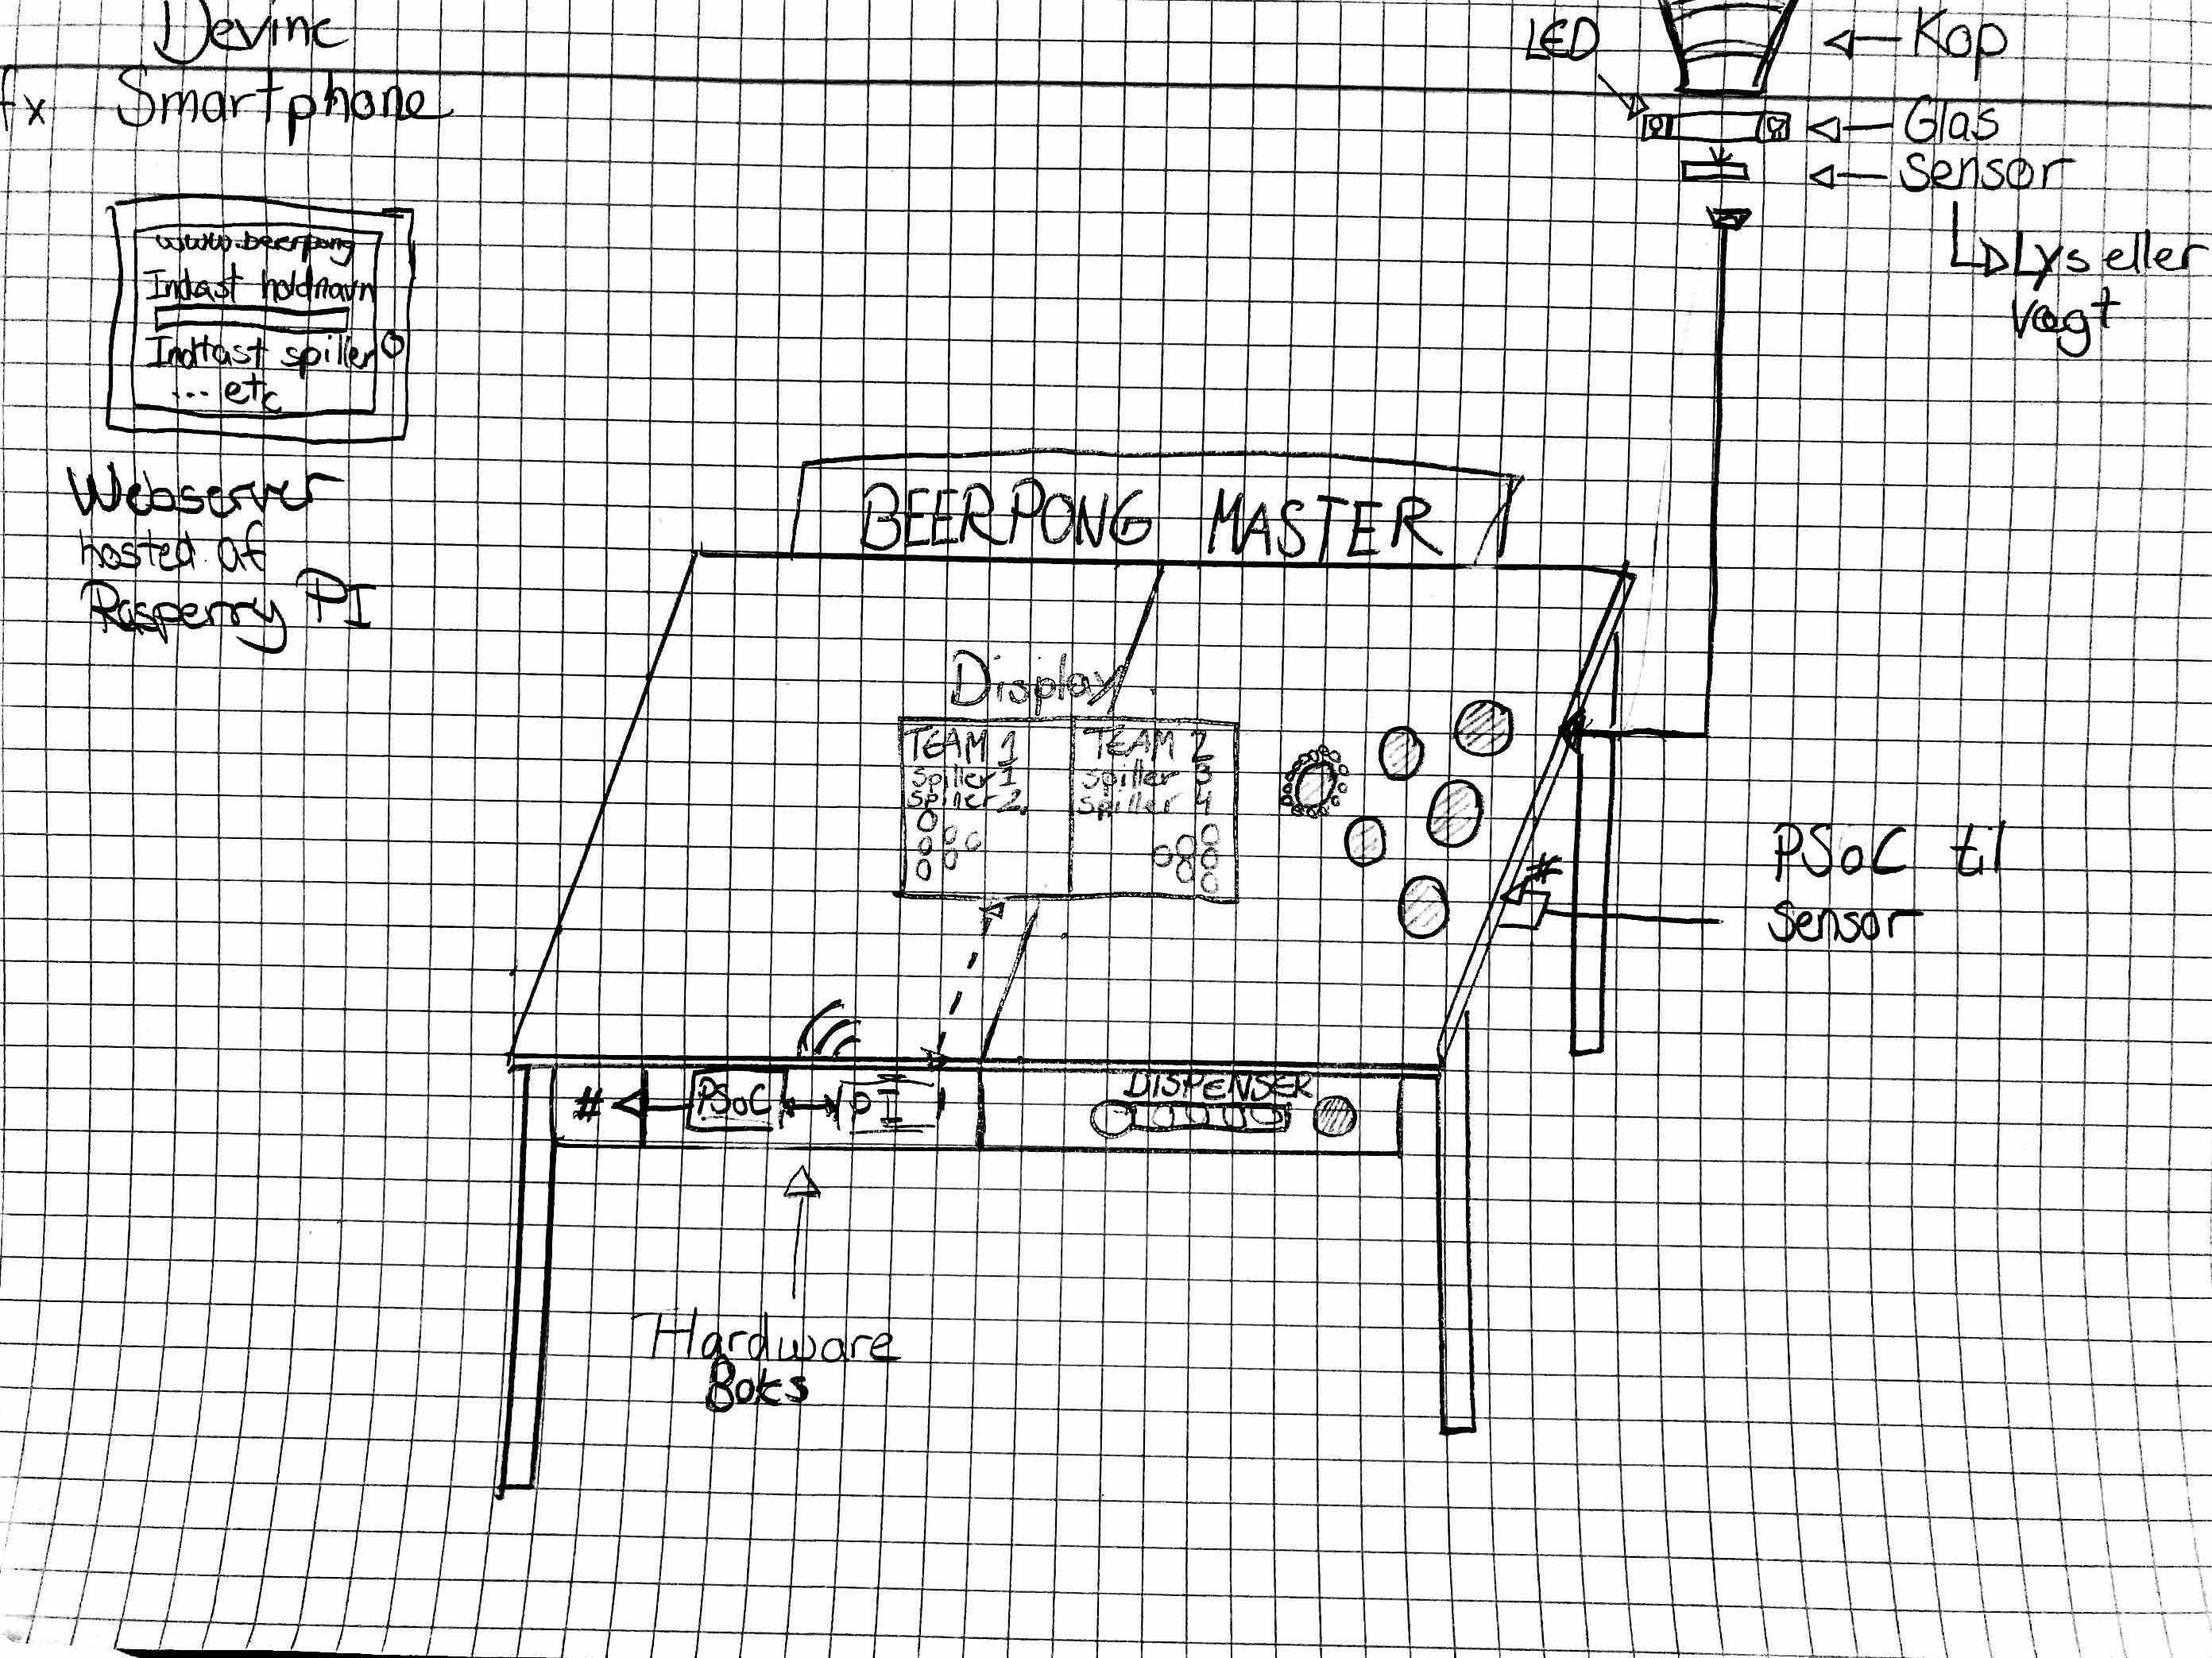 Devinc
fx Smartphone
www.beerpong
Indast holdnavn
Indtast spiller
... etc
Webserver
hosted af
Rasperry PI
LED
Kop
Glas
Sensor
Lys eller
vægt
BEERPONG MASTER
Display
TEAM 1
spiller 1
spiller 2
TEAM 2
spiller 3
spiller 4
#
PSoC til
Sensor
#
PSoC
PI
DISPENSER
Hardware
Boks